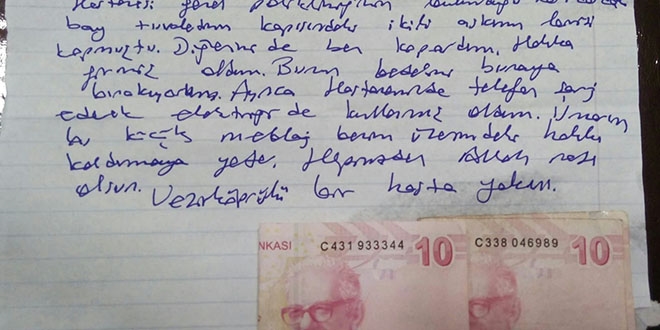 Hastanesi genel polikliniğin bulunduğu
bay tuvaletinin kapısındaki ikili askının birisi
kopmuştu. Diğerini de ben kopardım. Hakka
girmiş oldum. Bunun bedelini buraya
bırakıyorum. Ayrıca Hastanenizde telefon şarj
ederek elektriği de kullanmış oldum. Umarım
bu küçük meblağ benim üzerimdeki hakkı
kaldırmaya yeter. Hepinizden Allah razı
olsun.
Vezirköprülü bir hasta yakını.
NKASI C431 933344 10 C338 046989 10